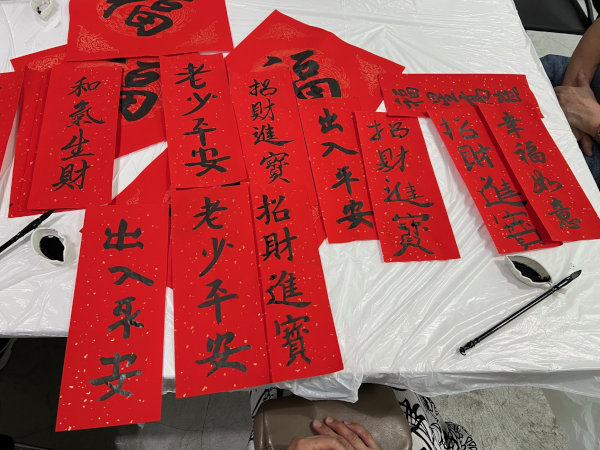 福
福
福
和氣生財
老少平安
招財進寶
出入平安
招財進寶
招財進寶
幸福如意
出入平安
老少平安
招財進寶